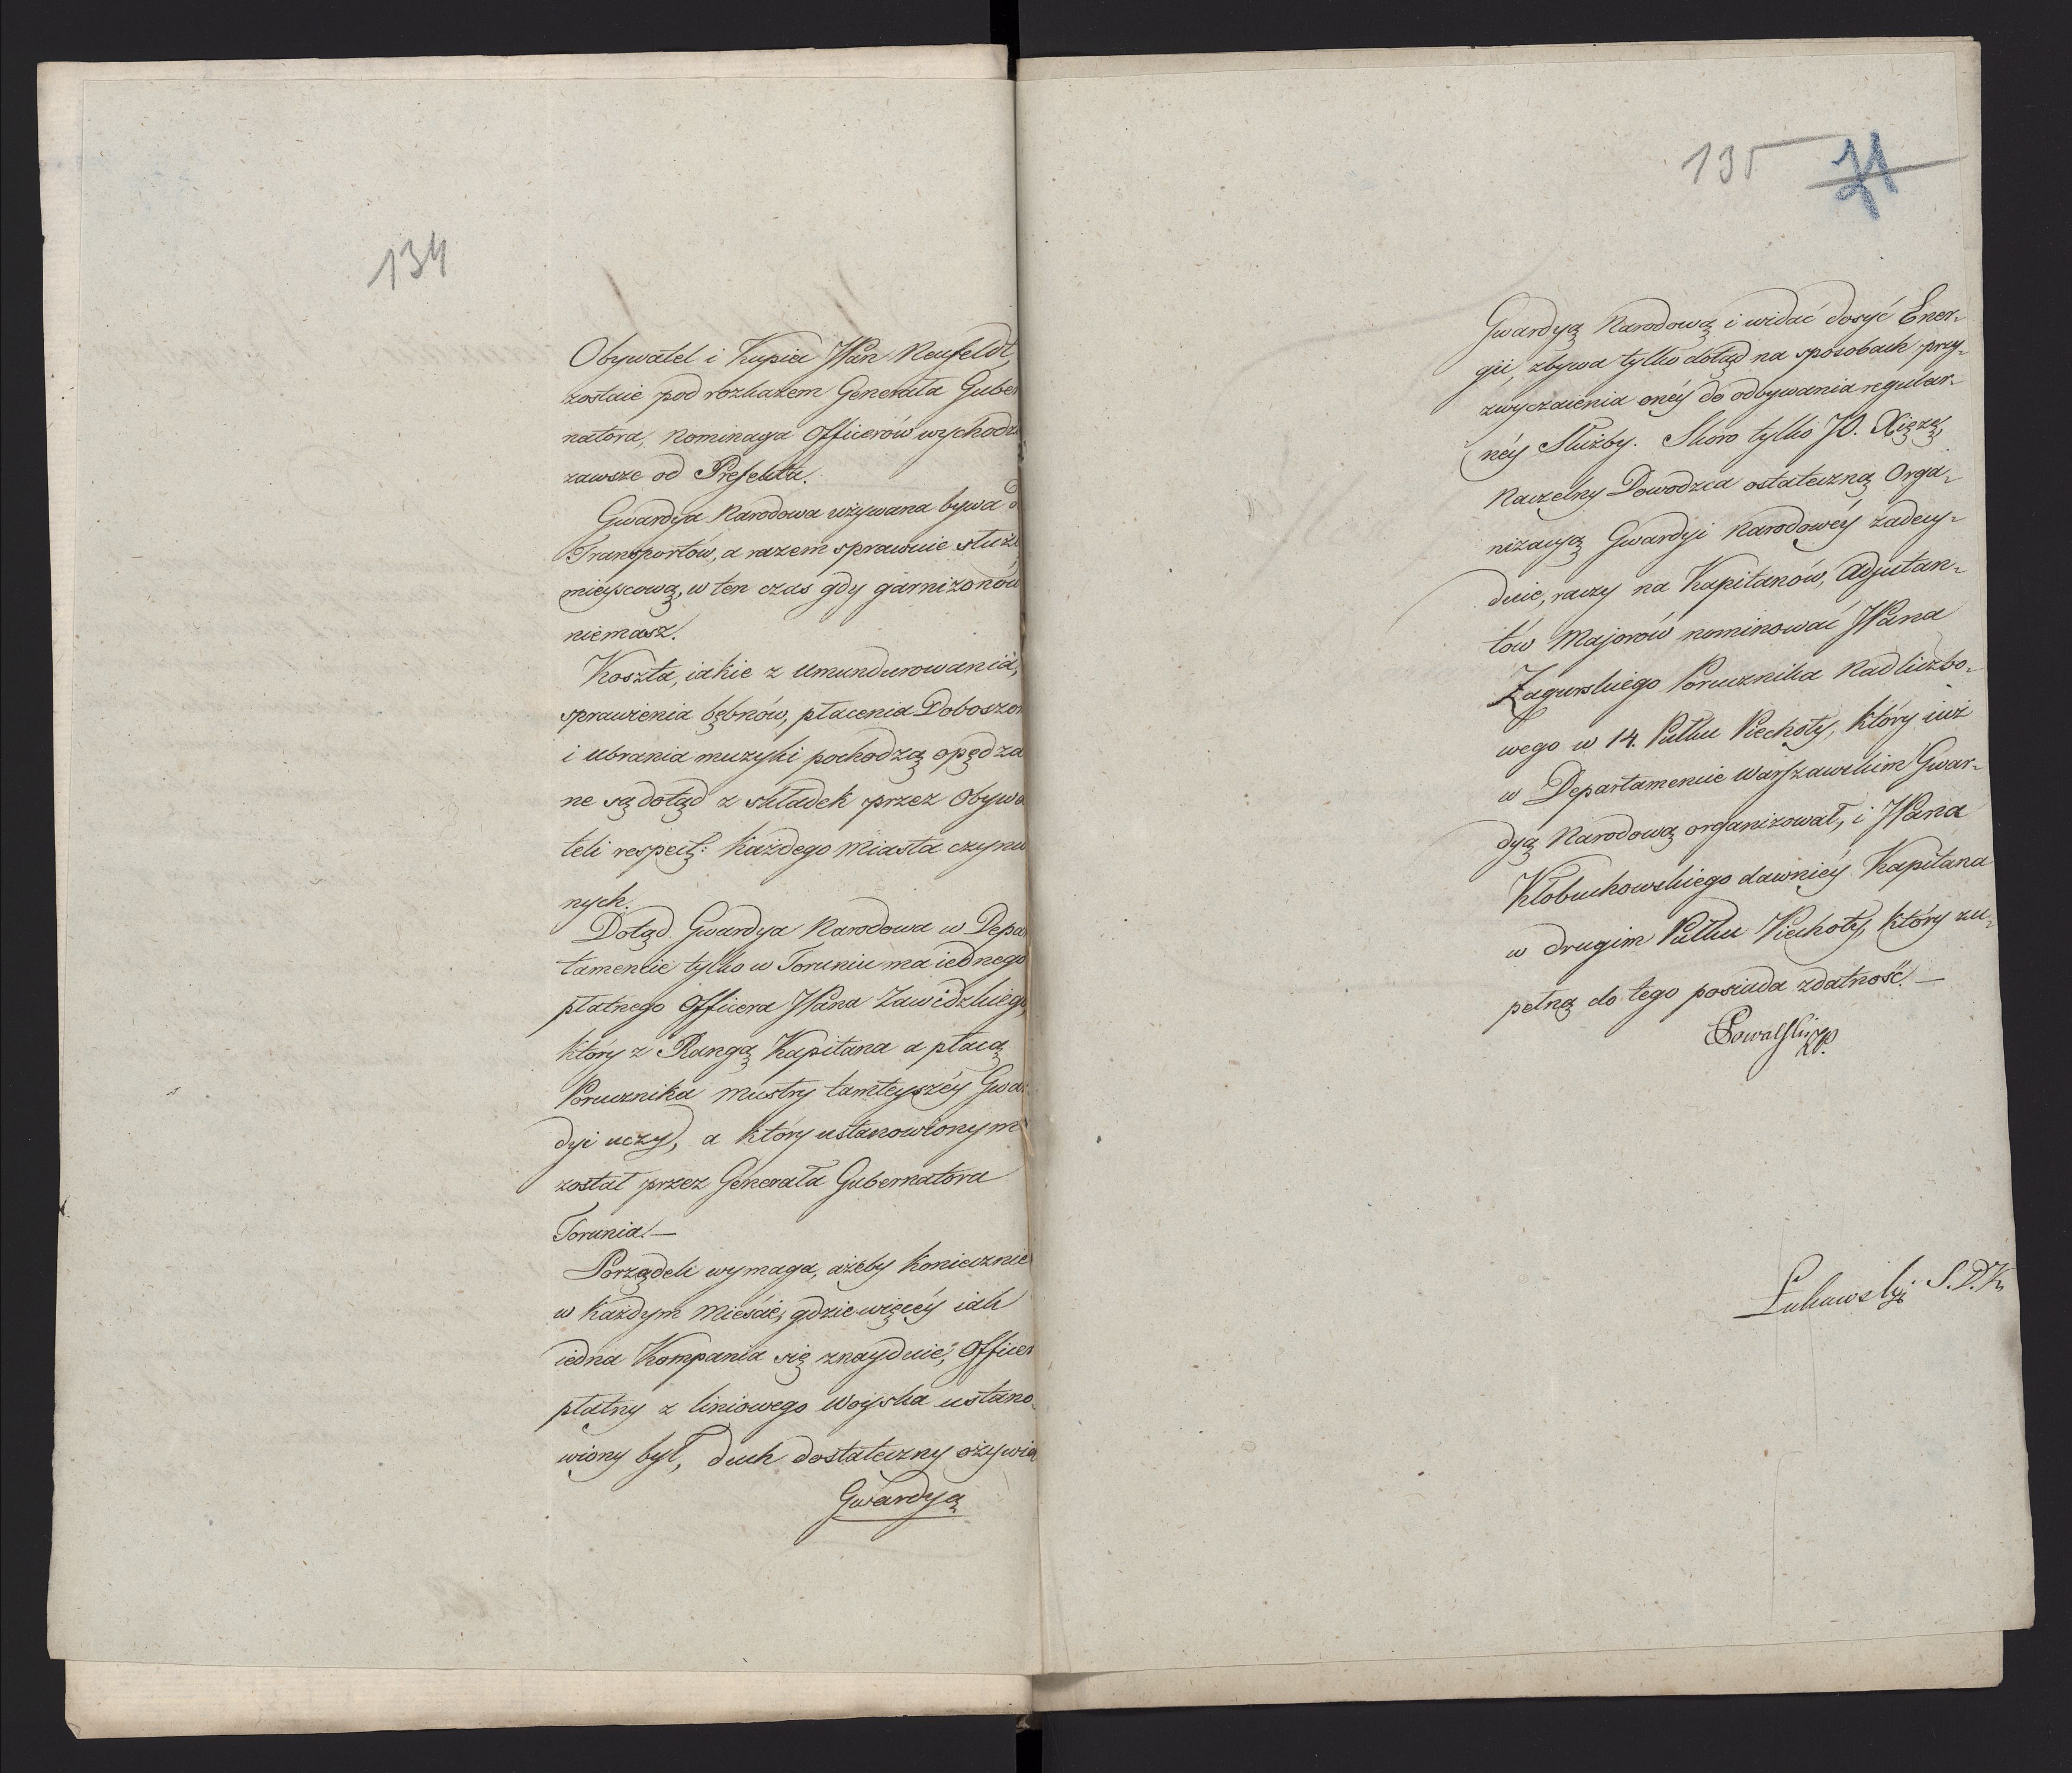 134
Obywatel i Kupiec JPan Neufeldt,
zostaie pod rozkazem Generała Guber
natora, nominacya Officerów wychodzi
zawsze od Prefekta.
Gwardya Narodowa używana bywa d
Transportów, a razem sprawuie służb
mieyscową, w ten czas gdy garnizonów
niemasz.
Koszta, iakie z umundurowania,
sprawienia bębnów, płacenia Doboszom
i ubrania muzyki pochodzą opędza
ne są dotąd z składek przez Obywa
teli respectę: każdego Miasta czynio
nych.
Dotąd Gwardya Narodowa w Depar
tamencie tylko w Toruniu ma iednego
płatnego Officera JPana Zawidzkiego,
który z Rangą Kapitana a płacą
Porucznika mustry tamteyszéy Gwar
dyi uczy, a który ustanowionym
został przez Generała Gubernatora
Torunia. —
Porządek wymaga, ażeby koniecznie
w każdym Mieście, gdzie więcéy iak
iedna Kompania się znayduie, Officer
płatny z liniowego Woyska ustano-
wiony był, duch dostateczny ożywia
Gwardyą
135 71
Gwardyą Narodową i widać dosyć Ener-
gii, zbywa tylko dotąd na sposobach przy-
zwyczaienia onéy do odbywania regular-
néy Służby. Skoro tylko JO. Xiążę,
Naczelny Dowodzca ostateczną Orga-
nizacyą Gwardyi Narodowéy zadecy-
duie, raczy na Kapitanów, Adjutan-
tów Majorów nominować JPana
Zagurskiego Porucznika Nadliczbo-
wego w 14. Pułku Piechoty, który iuż
w Departamencie Warszawskim Gwar-
dyą Narodową organizował, i JPana
Kłobuchowskiego dawniéy Kapitana
w drugim Pułku Piechoty, który zu-
pełną do tego posiada zdatność. —
Łukawski S.D.K.